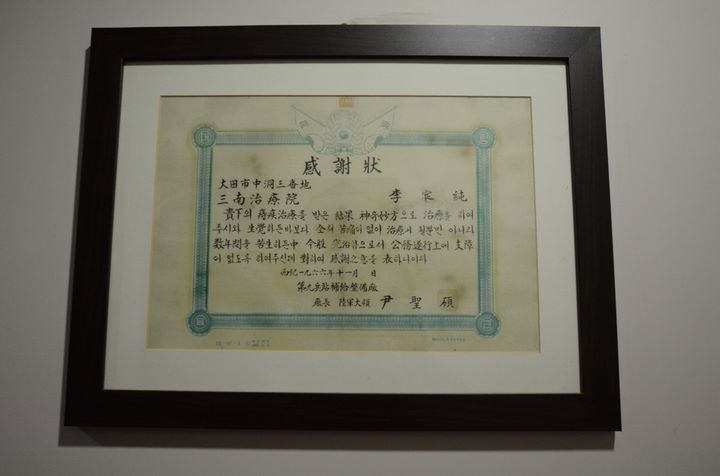 感謝狀
大田市中洞三番地
三南治療院 李家純
貴下의 痔疾治療을 받은 結果 神奇妙方으로 治療을 하여
주시와 生覺하든바보다 全혀 苦痛이 없이 治療가 될뿐만 아니라
数年間을 苦生하든中 今般 完治됨으로서 公務遂行上에 支障
이 없도록 하여주신데 對하여 感謝之意을 表하나이다
西紀一九六六年十一月 日
第九兵站補給整備廠
廠長 陸軍大領 尹聖碩